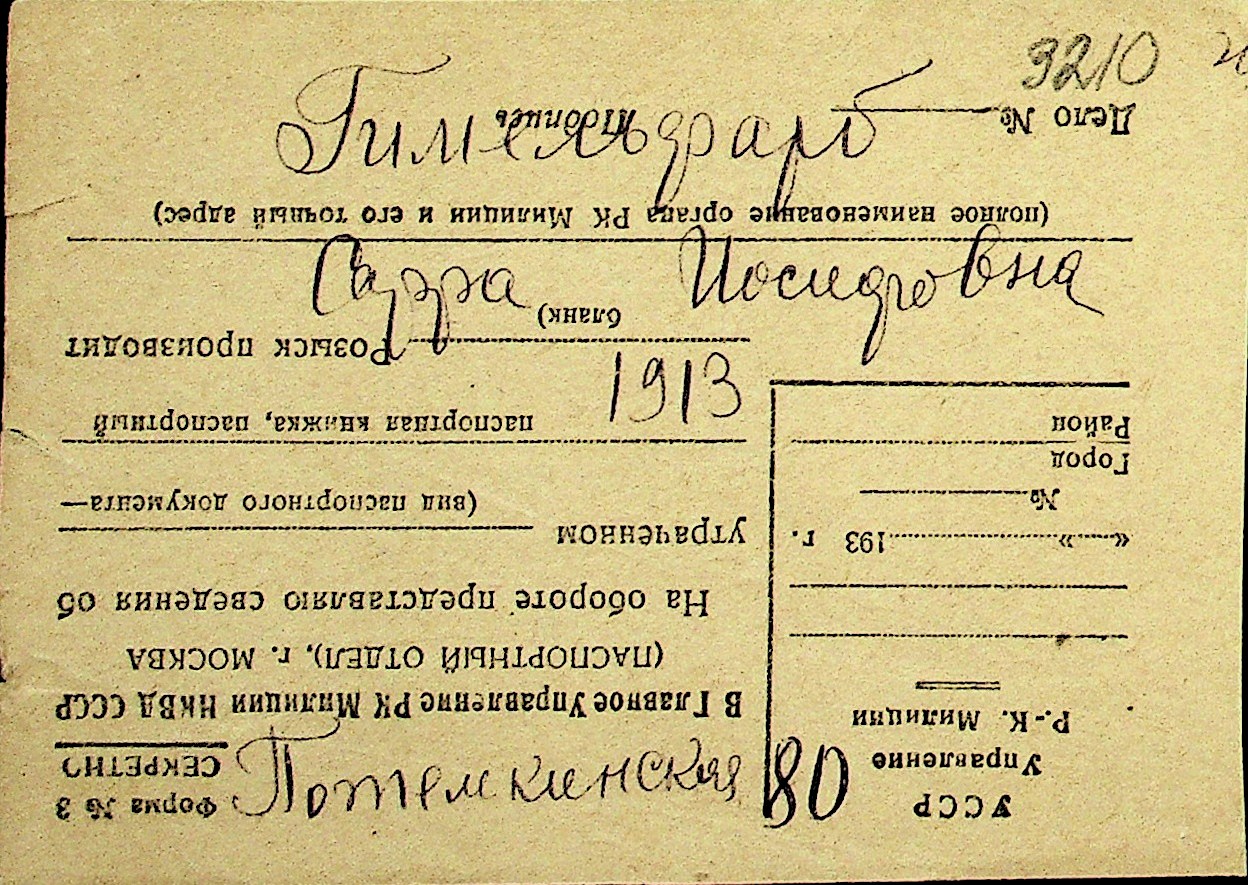 3210
Гимельфарб
Сарра Иосифовна
1913
Потемкинская 80
УССР
Управление
Р.-К. Милиции
«    »    193    г.
№
Город
Район
Форма № 3
СЕКРЕТНО
В Главное Управление РК Милиции НКВД СССР
(ПАСПОРТНЫЙ ОТДЕЛ), г. МОСКВА
На обороте представляю сведения об
утраченном
(вид паспортного документа—
паспортная книжка, паспортный
бланк)
Розыск производит
(полное наименование органа РК Милиции и его точный адрес)
Дело №
Подпись